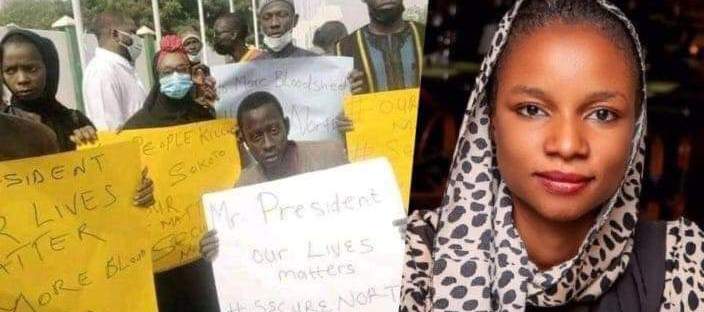 SIDENT
R LIVES
ATTER
MORE Blood
PEOPLE KILLE
SOKOTO
OUR
More Bloodshed
North
# OUR
Mr. President
our LIVES
matters
# SSCURE NORT